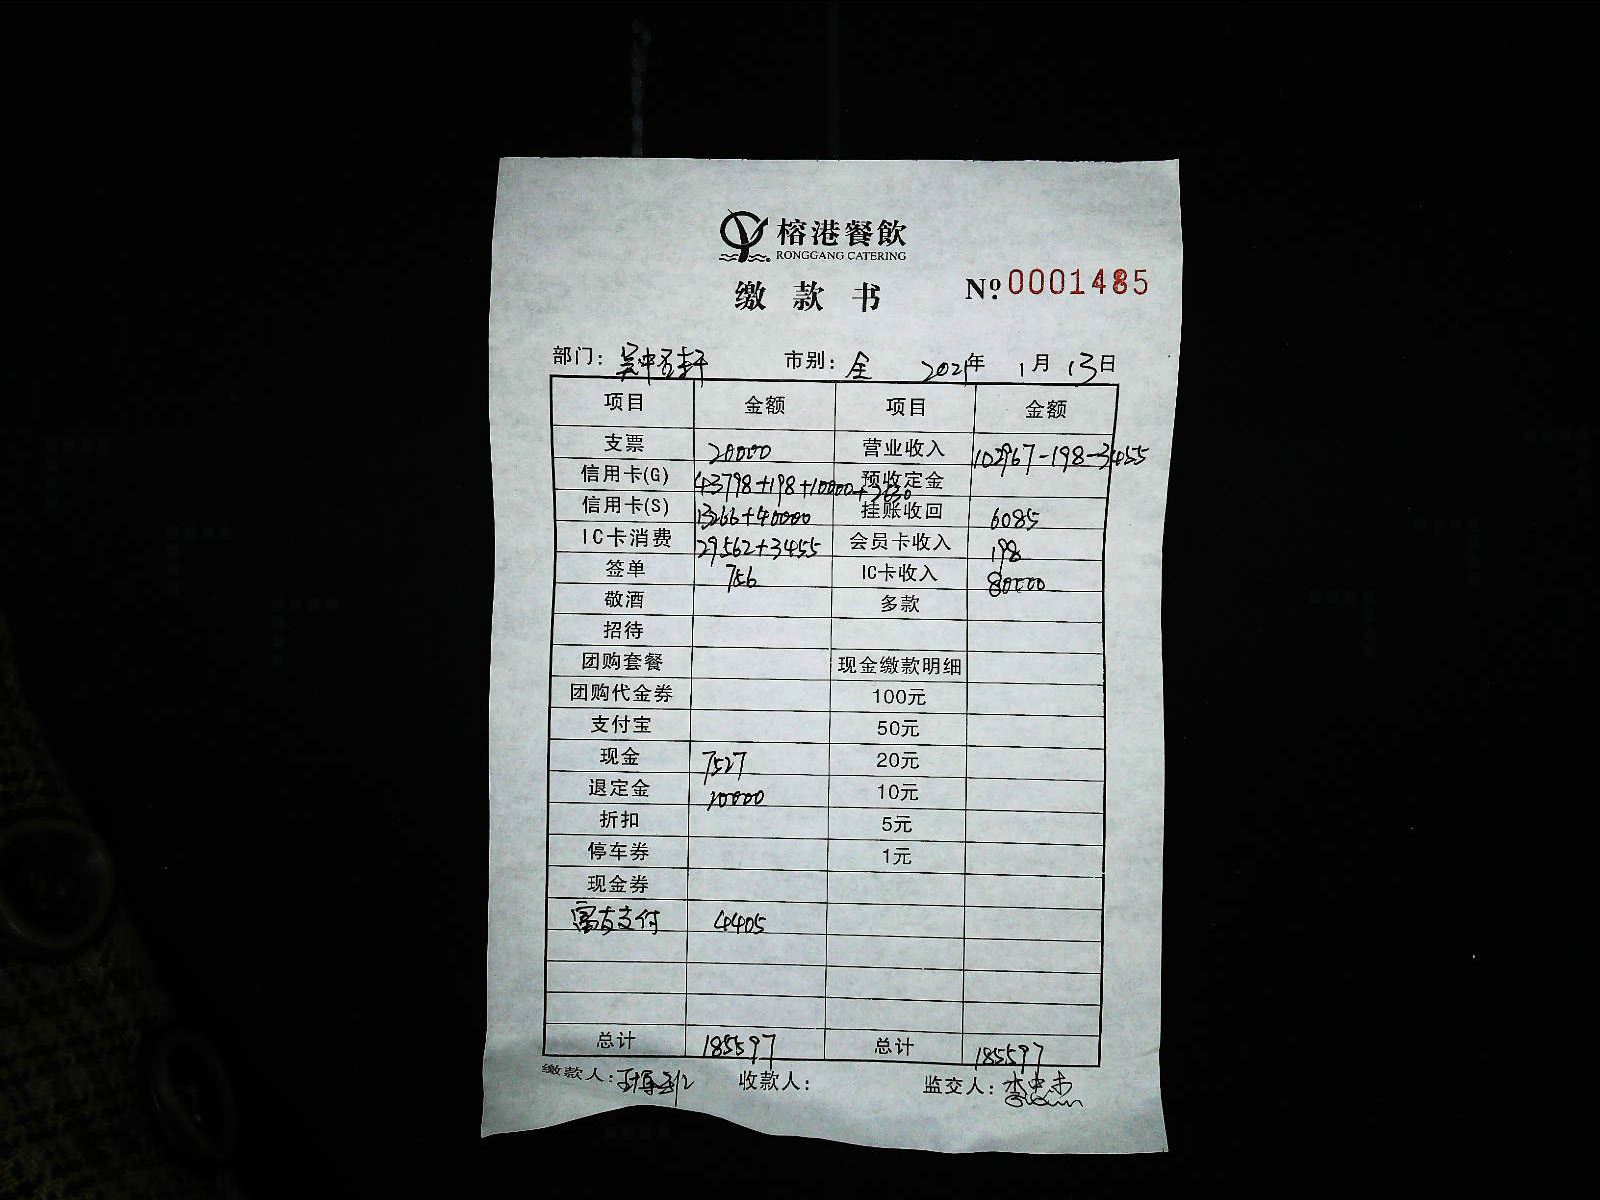 榕港餐飲
RONGGANG CATERING
缴款书 Nº 0001485
部门: 吴中 轩 市别: 全 2021年 1月 13日
项目 金额 项目 金额
支票 20000 营业收入 102967-198-3455
信用卡(G) 43798+198+10000+2630 预收定金
信用卡(S) 13266+40000 挂账收回 6085
IC卡消费 29562+3455 会员卡收入 198
签单 756 IC卡收入 80000
敬酒 多款
招待
团购套餐 现金缴款明细
团购代金券 100元
支付宝 50元
现金 7527 20元
退定金 10000 10元
折扣 5元
停车券 1元
现金券
富友支付 4405
总计 185597 总计 185597
缴款人: 收款人: 监交人: